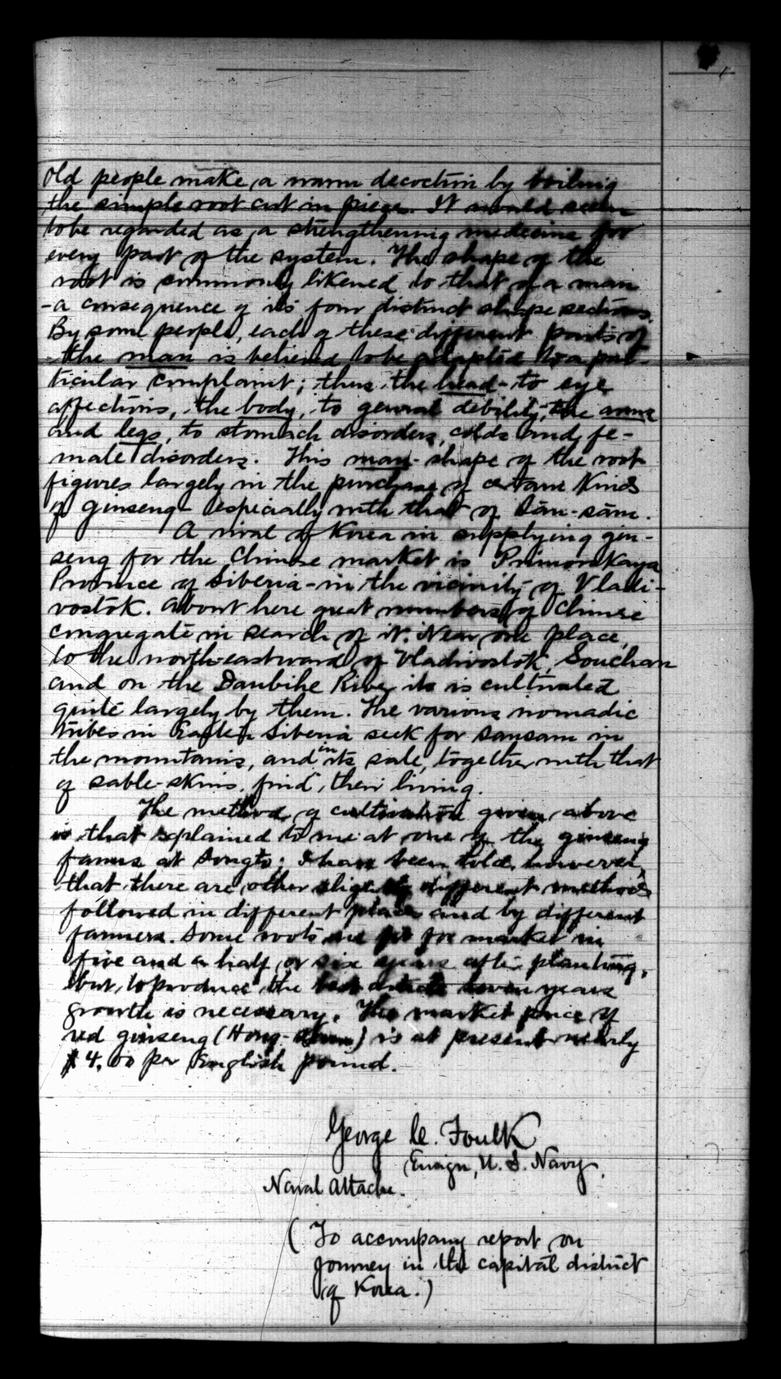 old people make a warm decoction by boiling
the simple root cut in pieces. It would seem
to be regarded as a strengthening medicine for
every part of the system. The shape of the
root is commonly likened to that of a man
- a consequence of its four distinct shape sections.
By some people, each of these different points of
the man is believed to be adapted to a par-
ticular complaint; thus the head - to eye
affections, the body, to general debility, the arms
and legs, to stomach disorders, colds and fe-
male disorders. This man-shape of the root
figures largely in the purchase of certain kinds
of ginseng - especially with that of Sān-sām.
A rival of Korea in supplying gin-
seng for the Chinese market is Primorskaya
Province of Siberia - in the vicinity of Vladi-
vostok. About here great numbers of Chinese
congregate in search of it. Near one place,
to the north-eastward of Vladivostok, Souchan
and on the Daubihe River it is cultivated
quite largely by them. The various nomadic
tribes in Eastern Siberia seek for sansam in
the mountains, and in its sale, together with that
of sable-skins, find their living.
The method of cultivation given above
is that explained to me at one of the ginseng
farms at Songto; I have been told, however,
that there are other slightly different methods
followed in different places and by different
farmers. Some roots are fit for market in
five and a half, or six years after planting,
but, to produce the best article seven years
growth is necessary. The market price of
red ginseng (Hong-sam) is at present nearly
$4.00 per English pound.
George C. Foulk
Ensign, U. S. Navy.
Naval Attache.
( To accompany report on
journey in the capital district
of Korea. )